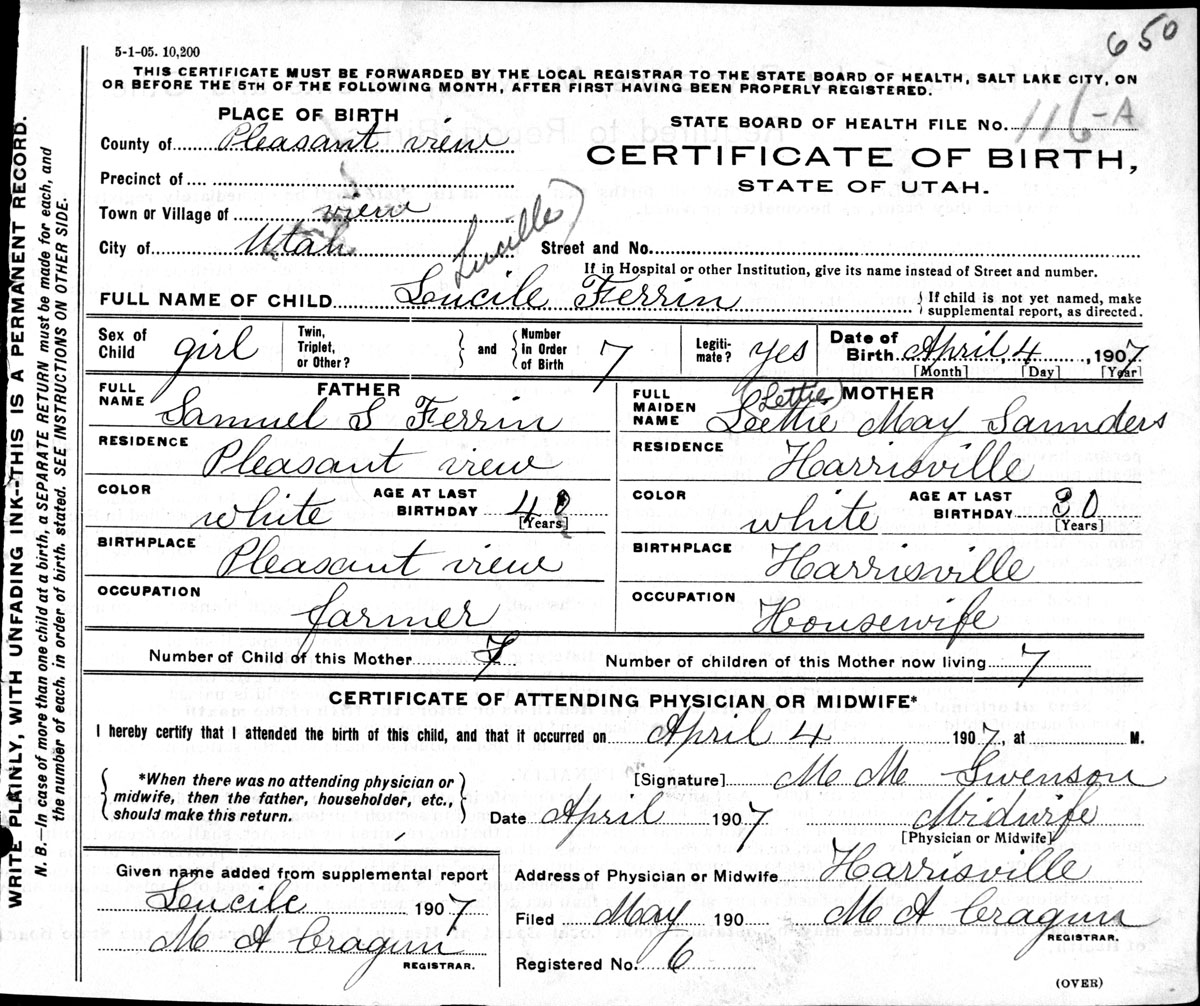 650
5-1-05. 10,200
THIS CERTIFICATE MUST BE FORWARDED BY THE LOCAL REGISTRAR TO THE STATE BOARD OF HEALTH, SALT LAKE CITY, ON
OR BEFORE THE 5TH OF THE FOLLOWING MONTH, AFTER FIRST HAVING BEEN PROPERLY REGISTERED.
WRITE PLAINLY, WITH UNFADING INK--THIS IS A PERMANENT RECORD.
N. B.—In case of more than one child at a birth, a SEPARATE RETURN must be made for each, and
the number of each, in order of birth, stated. SEE INSTRUCTIONS ON OTHER SIDE.
PLACE OF BIRTH
County of Pleasant view
Precinct of
Town or Village of view
City of Utah
STATE BOARD OF HEALTH FILE No. 116-A
CERTIFICATE OF BIRTH,
STATE OF UTAH.
Lucille
Street and No.
If in Hospital or other Institution, give its name instead of Street and number.
FULL NAME OF CHILD Lucile Ferrin
If child is not yet named, make
supplemental report, as directed.
Sex of Child girl
Twin, Triplet, or Other?
and
Number in Order of Birth 7
Legitimate? yes
Date of Birth April 4, 1907
[Month] [Day] [Year]
FATHER
FULL NAME Samuel S Ferrin
RESIDENCE Pleasant view
COLOR white AGE AT LAST BIRTHDAY 40
[Years]
BIRTHPLACE Pleasant view
OCCUPATION farmer
MOTHER
Lettie
FULL MAIDEN NAME Lettie May Saunders
RESIDENCE Harrisville
COLOR white AGE AT LAST BIRTHDAY 30
[Years]
BIRTHPLACE Harrisville
OCCUPATION Housewife
Number of Child of this Mother 7 Number of children of this Mother now living 7
CERTIFICATE OF ATTENDING PHYSICIAN OR MIDWIFE*
I hereby certify that I attended the birth of this child, and that it occurred on April 4 1907, at M.
*When there was no attending physician or
midwife, then the father, householder, etc.,
should make this return.
[Signature] M M Swenson
Date April 1907 Midwife
[Physician or Midwife]
Given name added from supplemental report
Lucile 1907
M A Cragun
REGISTRAR.
Address of Physician or Midwife Harrisville
Filed May 190 M A Cragun
REGISTRAR.
Registered No. 6
(OVER)